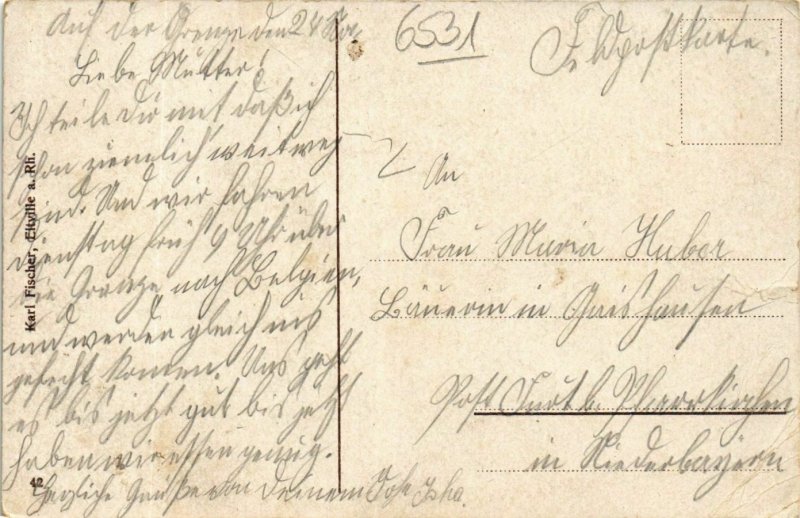 Auf der Grenze den 24
Liebe Mutter!
Ich teile Dir mit daß ich
schon ziemlich weit weg
sind. Und wir fahren
dienstag früh 9 Uhr über
die Grenze nach Belgien,
und werden gleich ins
gefecht komen. Uns geht
es bis jetzt gut bis jetzt
haben wir essen genug.
Herzliche Grüße von Deinem
6531
Feldpostkarte.
An
Frau Maria Huber
Bäuerin in Gaishausen
Post Furt b. Pfarrkirchen
in Niederbayern
Karl Fischer, Eltville a. Rh.